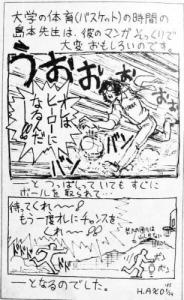 大学の体育(バスケット)の時間の
島本先生は、彼のマンガそっくりで
大変おもしろいのです。
うおおおお
オレは
ヒーローに
なるんだ!!
バン
バン
バン
―と、つっぱしっていても すぐに
ボールを取られて…
待ってくれー!
もう一度オレにチャンスを
くれー!!
―となるのでした。
H.AKO